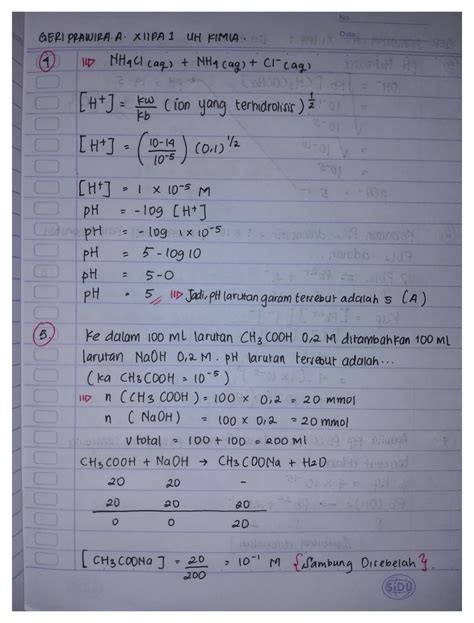 No.
Date.
GERI PRAWIRA A. XI IPA 1 UH KIMIA.
4 NH4Cl (aq) + NH4 (aq) + Cl⁻ (aq)
[H+] = kw/kb (ion yang terhidrolisis)^1/2
[H+] = (10-14/10-5) (0,1)^1/2
[H+] = 1 x 10-5 M
pH = -log [H+]
pH = -log 1 x 10-5
pH = 5 - log 10
pH = 5-0
pH = 5 Jadi, pH larutan garam tersebut adalah 5 (A)
5 Ke dalam 100 ml larutan CH3COOH 0,2 M ditambahkan 100 ml
larutan NaOH 0,2 M. pH larutan tersebut adalah...
(ka CH3COOH = 10-5)
n (CH3COOH) = 100 x 0,2 = 20 mmol
n (NaOH) = 100 x 0,2 = 20 mmol
v total = 100 + 100 = 200 ml
CH3COOH + NaOH → CH3COONa + H2O
20 20 -
20 20 20
0 0 20
[CH3COONa] = 20/200 = 10-1 M {Sambung Disebelah}.
SiDU